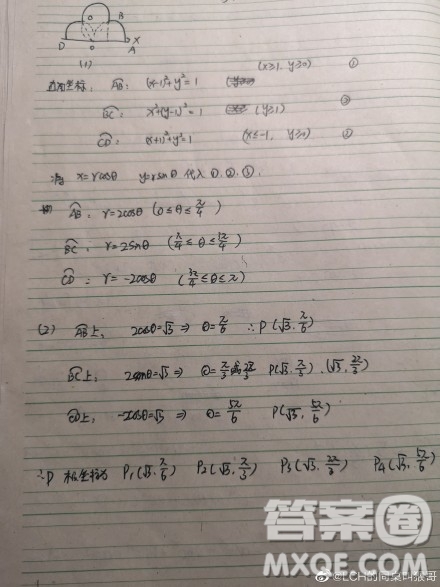 B
D
O
A
X
(1)
直角坐标, AB: (x-1)²+y²=1 (x≥1, y≥0) ①
BC: x²+(y-1)²=1 (y≥1) ②
CD: (x+1)²+y²=1 (x≤-1, y≥0)
将 x=rcosθ y=rsinθ 代入 ①,②,③.
AB: r=2cosθ (0≤θ≤π/4)
BC: r=2sinθ (π/4≤θ≤3π/4)
CD: r=-2cosθ (3π/4≤θ≤π)
(2) AB上, 2cosθ=√3 ⇒ θ=π/6 ∴P(√3, π/6)
BC上, 2sinθ=√3 ⇒ θ=π/3或2π/3 P(√3, π/3), (√3, 2π/3)
CD上, -2cosθ=√3 ⇒ θ=5π/6 P(√3, 5π/6)
∴P 极坐标为 P₁(√3, π/6) P₂(√3, π/3) P₃(√3, 2π/3) P₄(√3, 5π/6)
答案圈
MXQE.COM
@LCH的同桌叫张哥